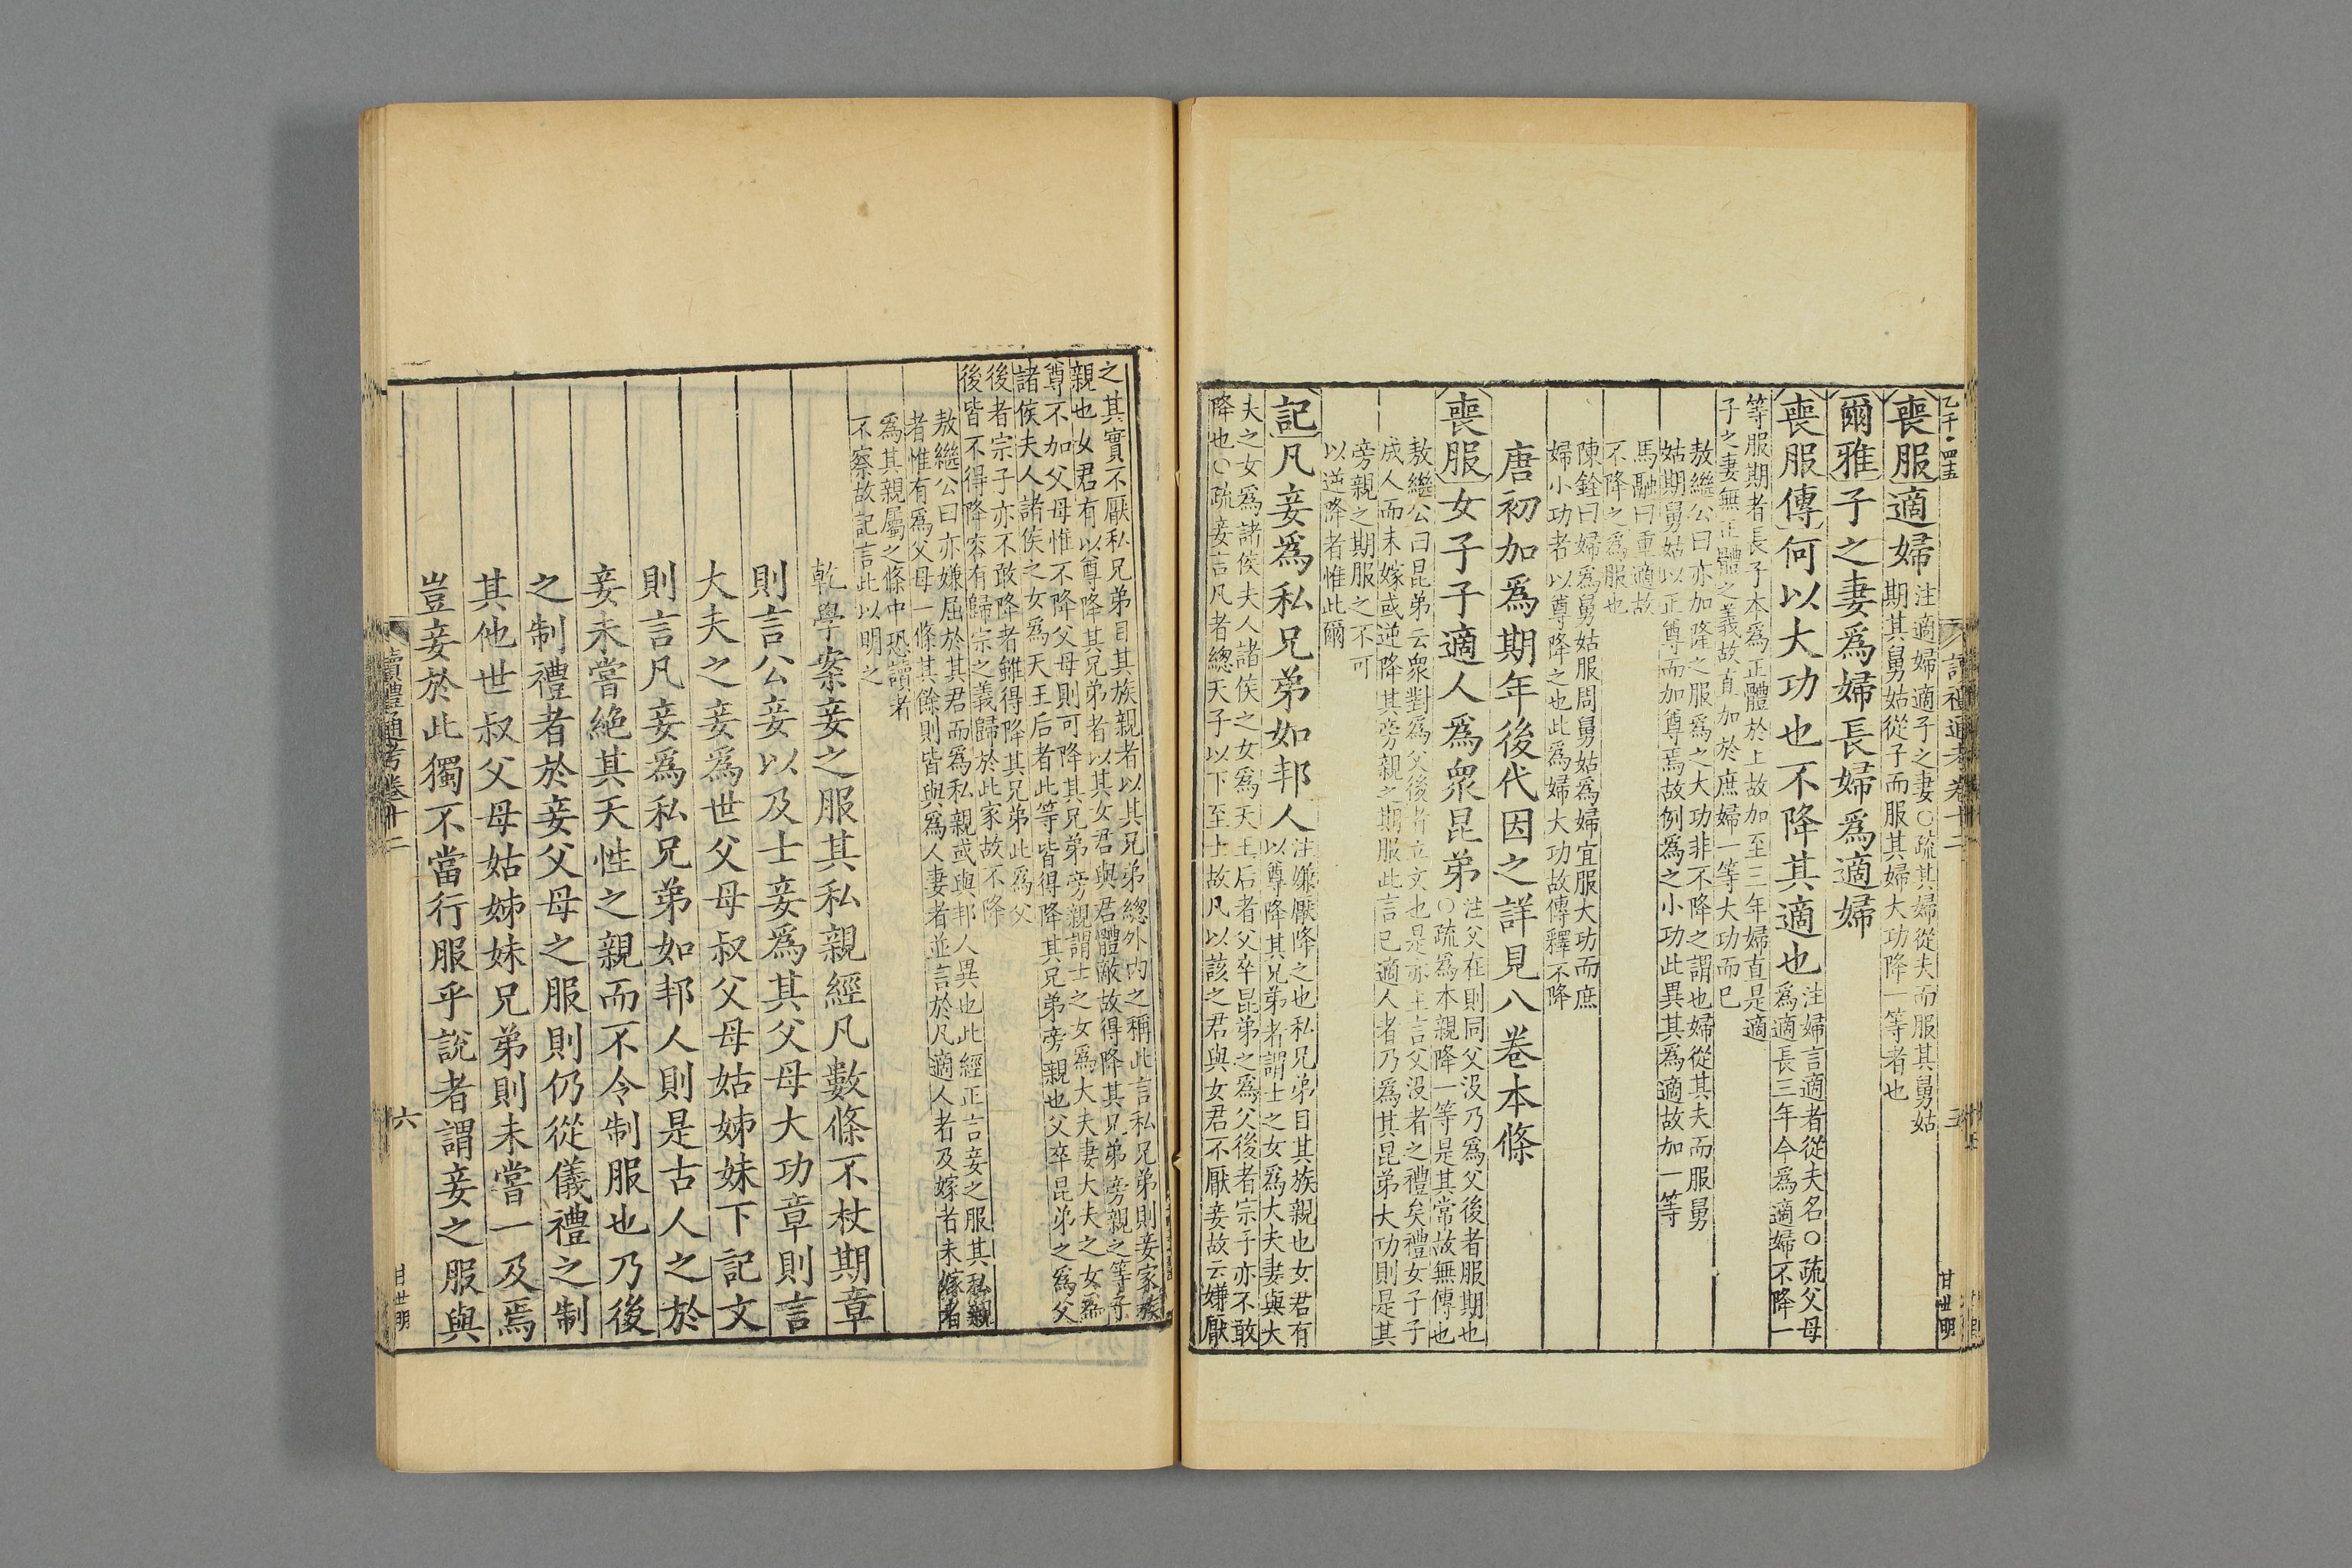 乙千·四五
讀禮通考卷十二
五
甘世明
喪服適婦
注適婦適子之妻○疏其婦從夫而服其舅姑
期其舅姑從子而服其婦大功降一等者也
爾雅子之妻爲婦長婦爲適婦
喪服傳何以大功也不降其適也
注婦言適者從夫名○疏父母
爲適長三年今爲適婦不降一
等服期者長子本爲正體於上故加至三年婦直是適
子之妻無正體之義故直加於庶婦一等大功而已
敖繼公曰亦加隆之服爲之大功非不降之謂也婦從其夫而服舅
姑期舅姑以正尊而加尊焉故例爲之小功此異其爲適故加一等
馬融曰重適故
不降之爲服也
陳銓曰婦爲舅姑服周舅姑爲婦宜服大功而庶
婦小功者以尊降之也此爲婦大功故傳釋不降
唐初加爲期年後代因之詳見八卷本條
喪服女子子適人爲眾昆弟
注父在則同父没乃爲父後者服期也
○疏爲本親降一等是其常故無傳也
敖繼公曰昆弟云眾對爲父後者立文也是亦主言父没者之禮矣禮女子子
成人而未嫁或逆降其旁親之期服此言已適人者乃爲其昆弟大功則是其
旁親之期服之不可
以逆降者惟此爾
記凡妾爲私兄弟如邦人
注嫌厭降之也私兄弟目其族親也女君有
以尊降其兄弟者謂士之女爲大夫妻與大
夫之女爲諸侯夫人諸侯之女爲天王后者父卒昆弟之爲父後者宗子亦不敢
降也○疏妾言凡者總天子以下至士故凡以該之君與女君不厭妾故云嫌厭
之其實不厭私兄弟目其族親者以其兄弟總外内之稱此言私兄弟則妾家族
親也女君有以尊降其兄弟者以其女君與君體敵故得降其兄弟旁親之等子
尊不加父母惟不降父母則可降其兄弟旁親謂士之女爲大夫妻大夫之女爲
諸侯夫人諸侯之女爲天王后者此等皆得降其兄弟旁親也父卒昆弟之爲父
後者宗子亦不敢降者雖得降其兄弟此爲父
後皆不得降容有歸宗之義歸於此家故不降
敖繼公曰亦嫌屈於其君而爲私親或與邦人異也此經正言妾之服其私親
者惟有爲父母一條其餘則皆與爲人妻者並言於凡適人者及嫁者未嫁者
爲其親屬之條中恐讀者
不察故記言此以明之
乾學案妾之服其私親經凡數條不杖期章
則言公妾以及士妾爲其父母大功章則言
大夫之妾爲世父母叔父母姑姊妹下記文
則言凡妾爲私兄弟如邦人則是古人之於
妾未嘗絶其天性之親而不令制服也乃後
之制禮者於妾父母之服則仍從儀禮之制
其他世叔父母姑姊妹兄弟則未嘗一及焉
豈妾於此獨不當行服乎說者謂妾之服與
讀禮通考卷十二
六
甘世明